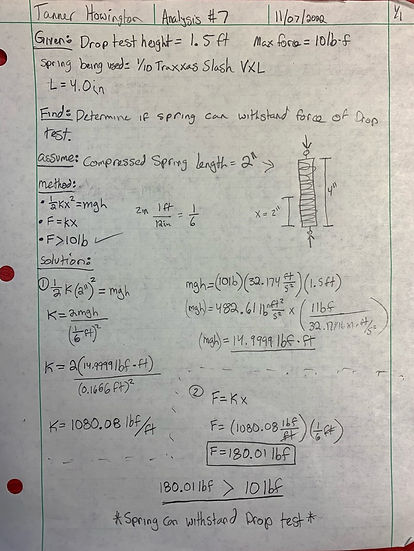 Tanner Howington Analysis #7 11/07/2022 1/1
Given: Drop test height = 1.5 ft Max force = 10 lb-f
Spring being used: 1/10 Traxxas Slash VXL
L = 4.0in
Find: Determine if spring can withstand force of Drop
test.
assume: Compressed Spring length = 2" →
method:
• ½Kx² = mgh
• F = Kx
• F > 10 lb ✓
2in 1ft/12in = 1/6
x = 2"
4"
Solution:
① ½K(2")² = mgh
K = 2mgh/(1/6 ft)²
K = 2(14.9999 lbf·ft)/(0.1666 ft)²
K = 1080.08 lbf/ft
mgh = (10lb)(32.174 ft/s²)(1.5ft)
(mgh) = 482.61 lb ft²/s² × (1lbf/
(mgh) = 14.9999 lbf·ft
② F = Kx
F = (1080.08 lbf/ft)(1/6 ft)
F = 180.01 lbf
180.01 lbf > 10 lbf
*Spring can withstand Drop test*